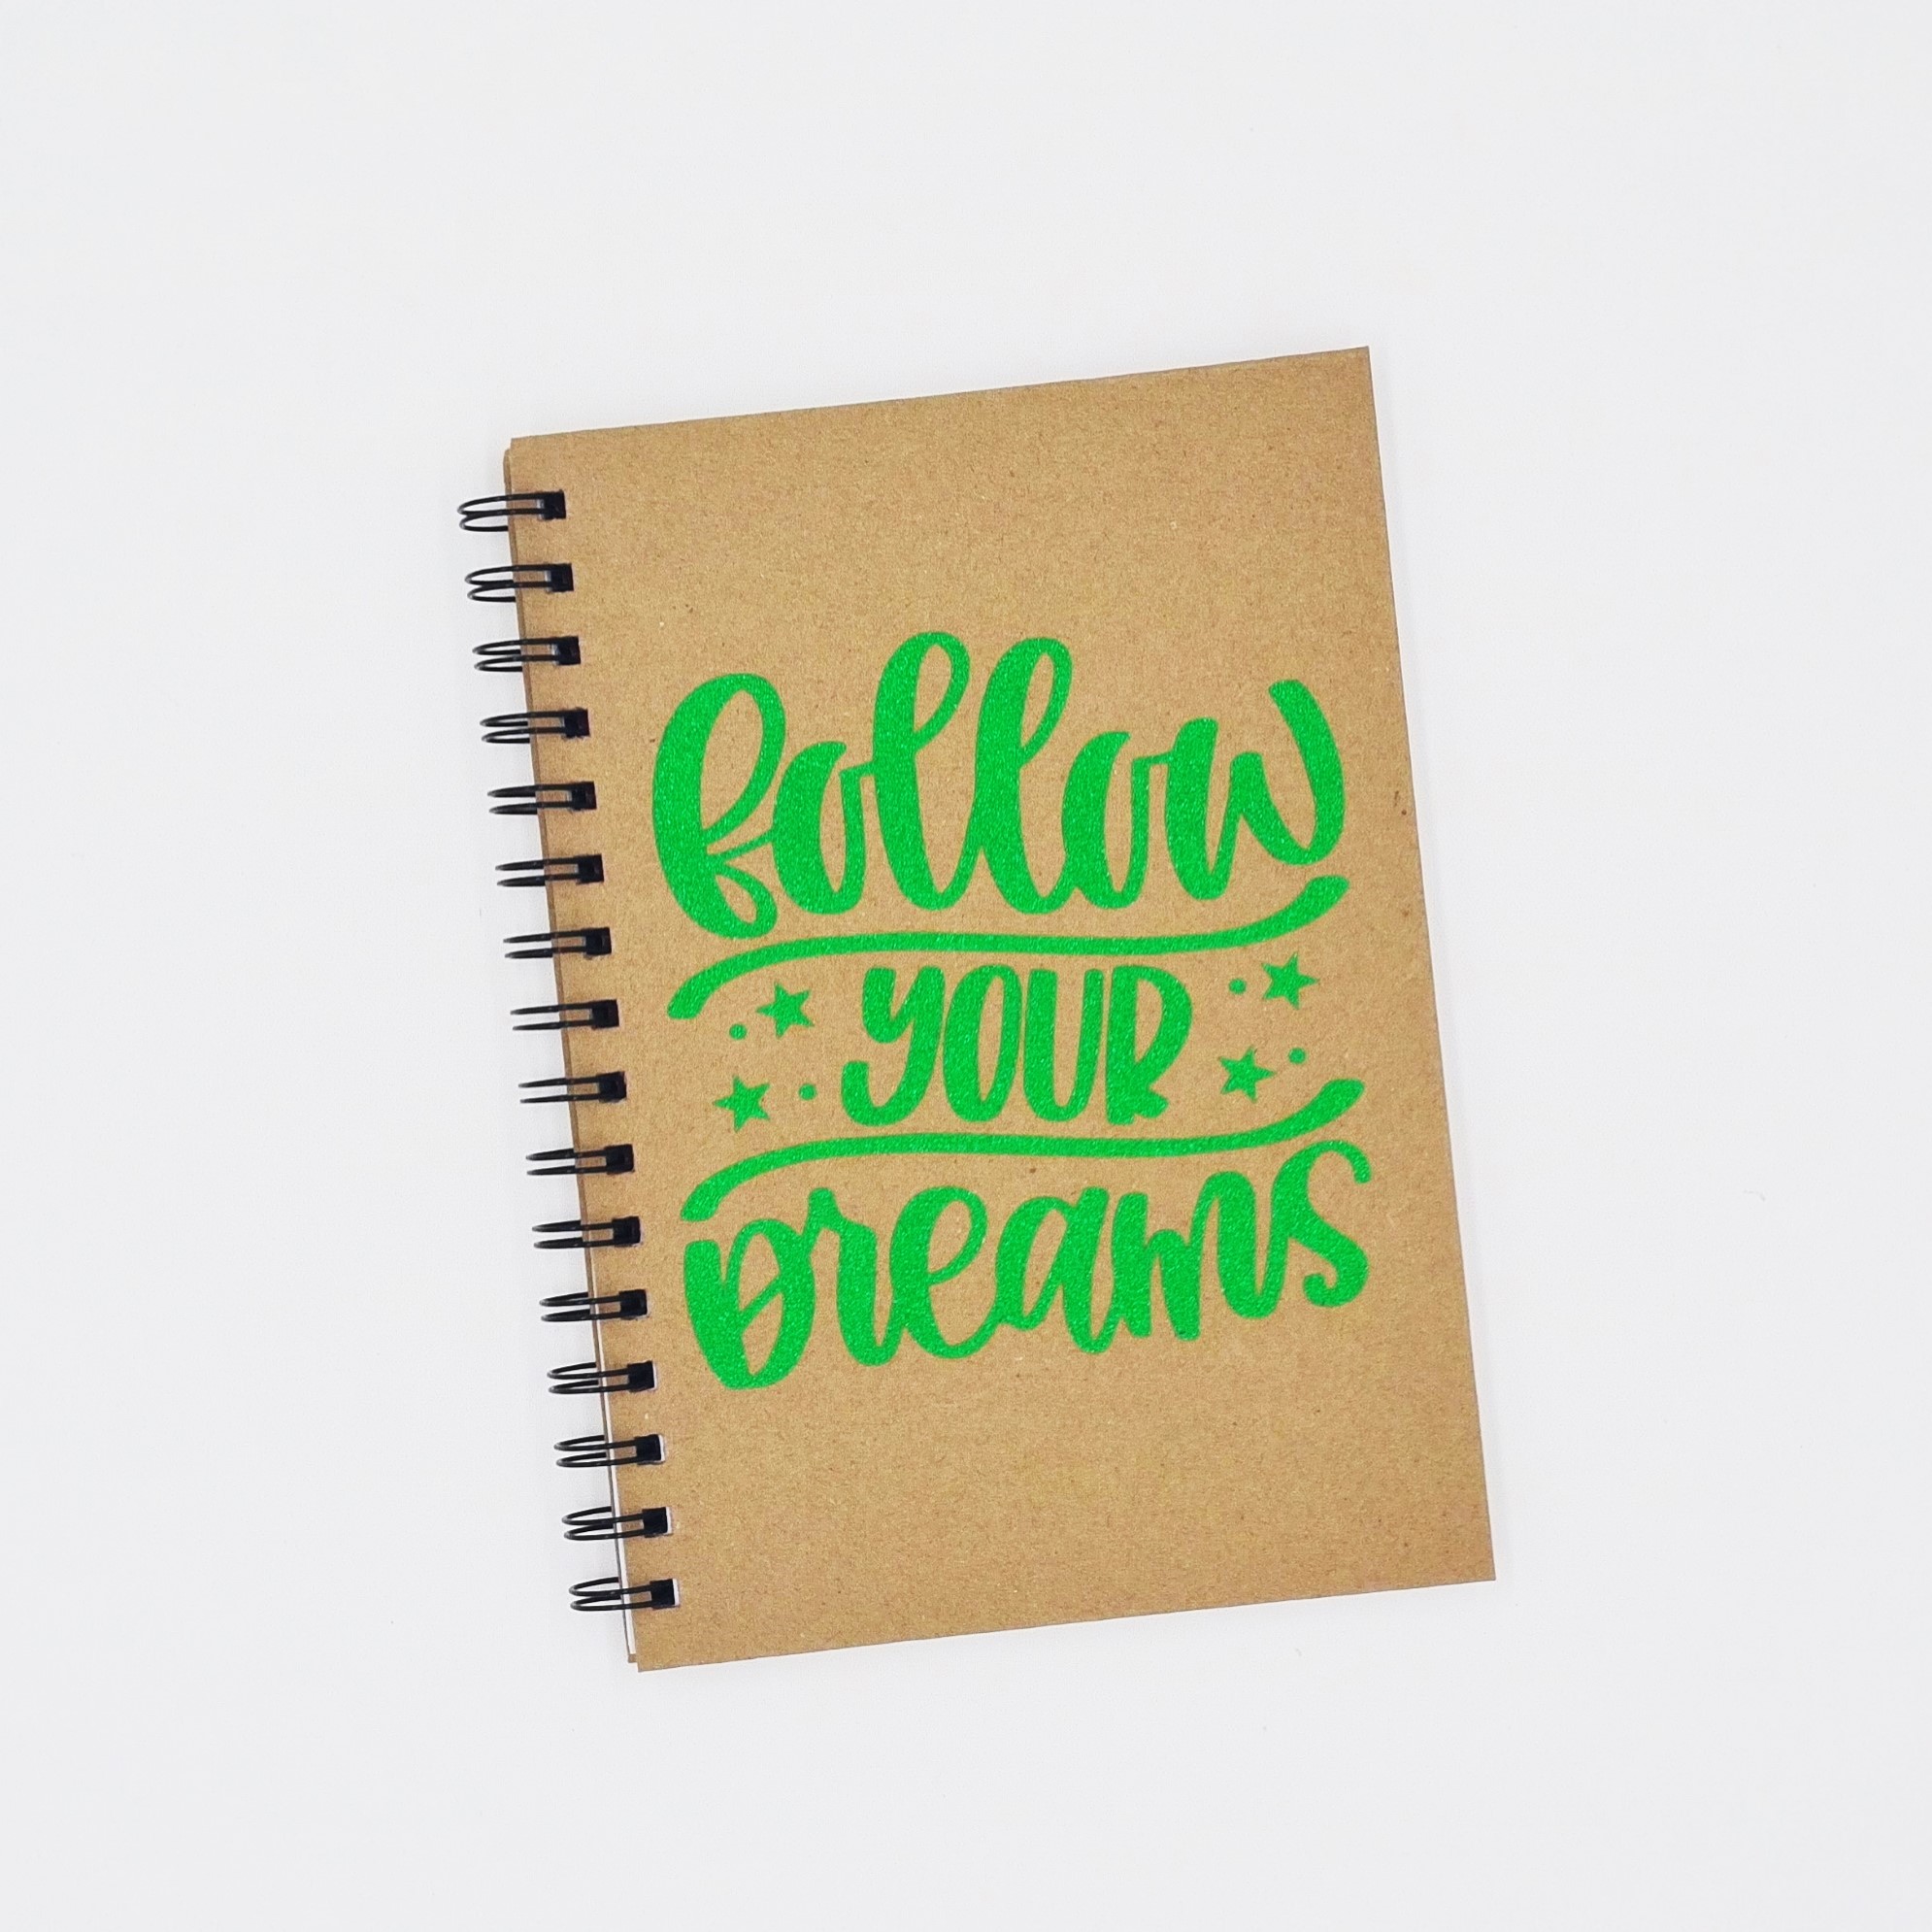 follow
YOUR
Dreams